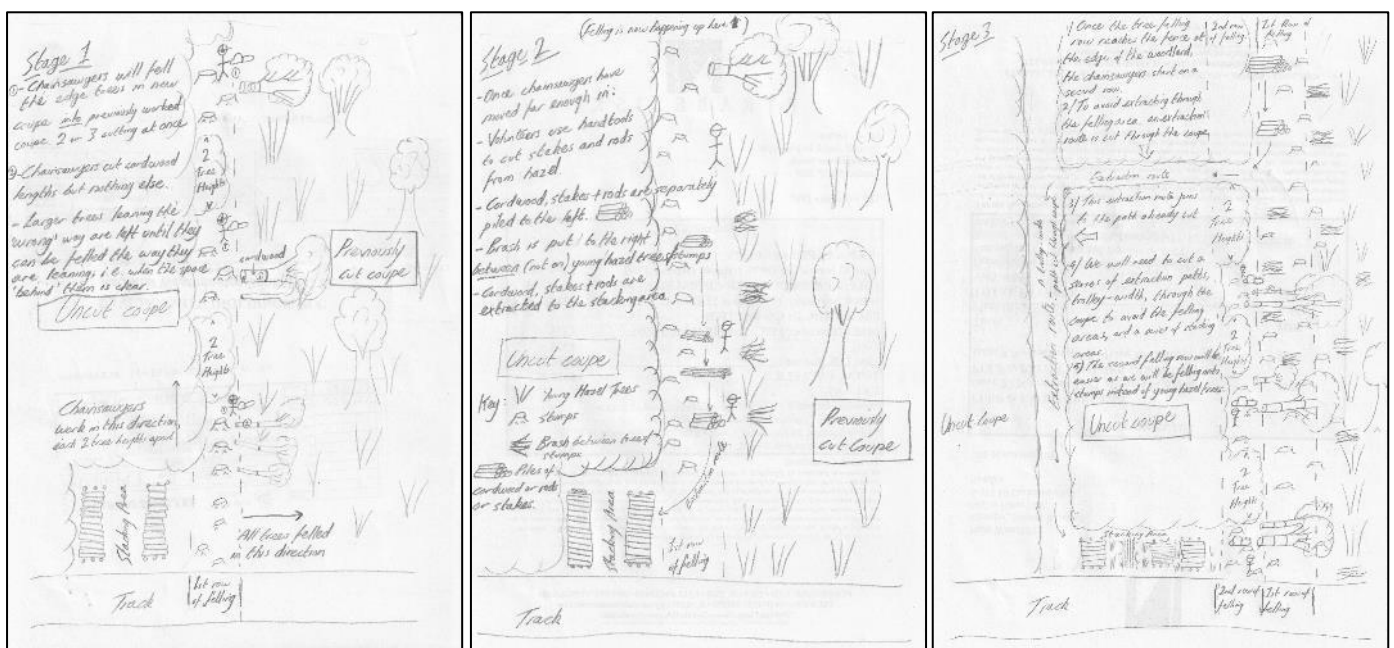 Stage 1
① - Chainsawyers will fell
the edge trees in new
coupe into previously worked
coupe 2 or 3 cutting at once
② - Chainsawyers cut cordwood
lengths but nothing else.
- Larger trees leaning the
'wrong' way are left until they
can be felled the way they
are leaning, i.e. when the space
'behind' them is clear.
Uncut coupe
2
Tree
Heights
cordwood
Previously
cut coupe
2
Tree
Heights
Chainsawyers
work in this direction,
each 2 tree heights apart
Stacking Area
All trees felled
in this direction
1st row
of felling
Track
(Felling is now happening up here)
Stage 2
- Once chainsawyers have
moved far enough in:
- Volunteers use handtools
to cut stakes and rods
from hazel.
- Cordwood, stakes + rods are separately
piled to the left.
- Brash is put to the right
between (not on) young hazel trees/stumps
- Cordwood, stakes + rods are
extracted to the stacking area
Uncut coupe
Key:
Young Hazel Trees
Stumps
Brash between trees/
stumps
Piles of
cordwood or rods
or stakes.
Previously
cut Coupe
Extraction route
Stacking Area
1st row
of felling
Track
Stage 3
1) Once the tree felling
row reaches the fence at
the edge of the woodland,
the chainsawyers start on a
second row.
2) To avoid extracting through
the felling area, an extraction
route is cut through the coupe,
2nd row
of felling
1st Row of
felling
Extraction route
3) This extraction route joins
to the path already cut
4) We will need to cut a
series of extraction paths,
trolley-width, through the
coupe to avoid the felling
areas, and a series of stacking
areas.
5) The second felling row will be
easier as we will be felling onto
stumps instead of young hazel trees.
2
Tree
Heights
2
Tree
Heights
Extraction route - a trolley-width
path is cleared
Uncut Coupe
Uncut coupe
2
Tree
Heights
Stacking Area
Track
2nd row of
felling
1st row of
felling